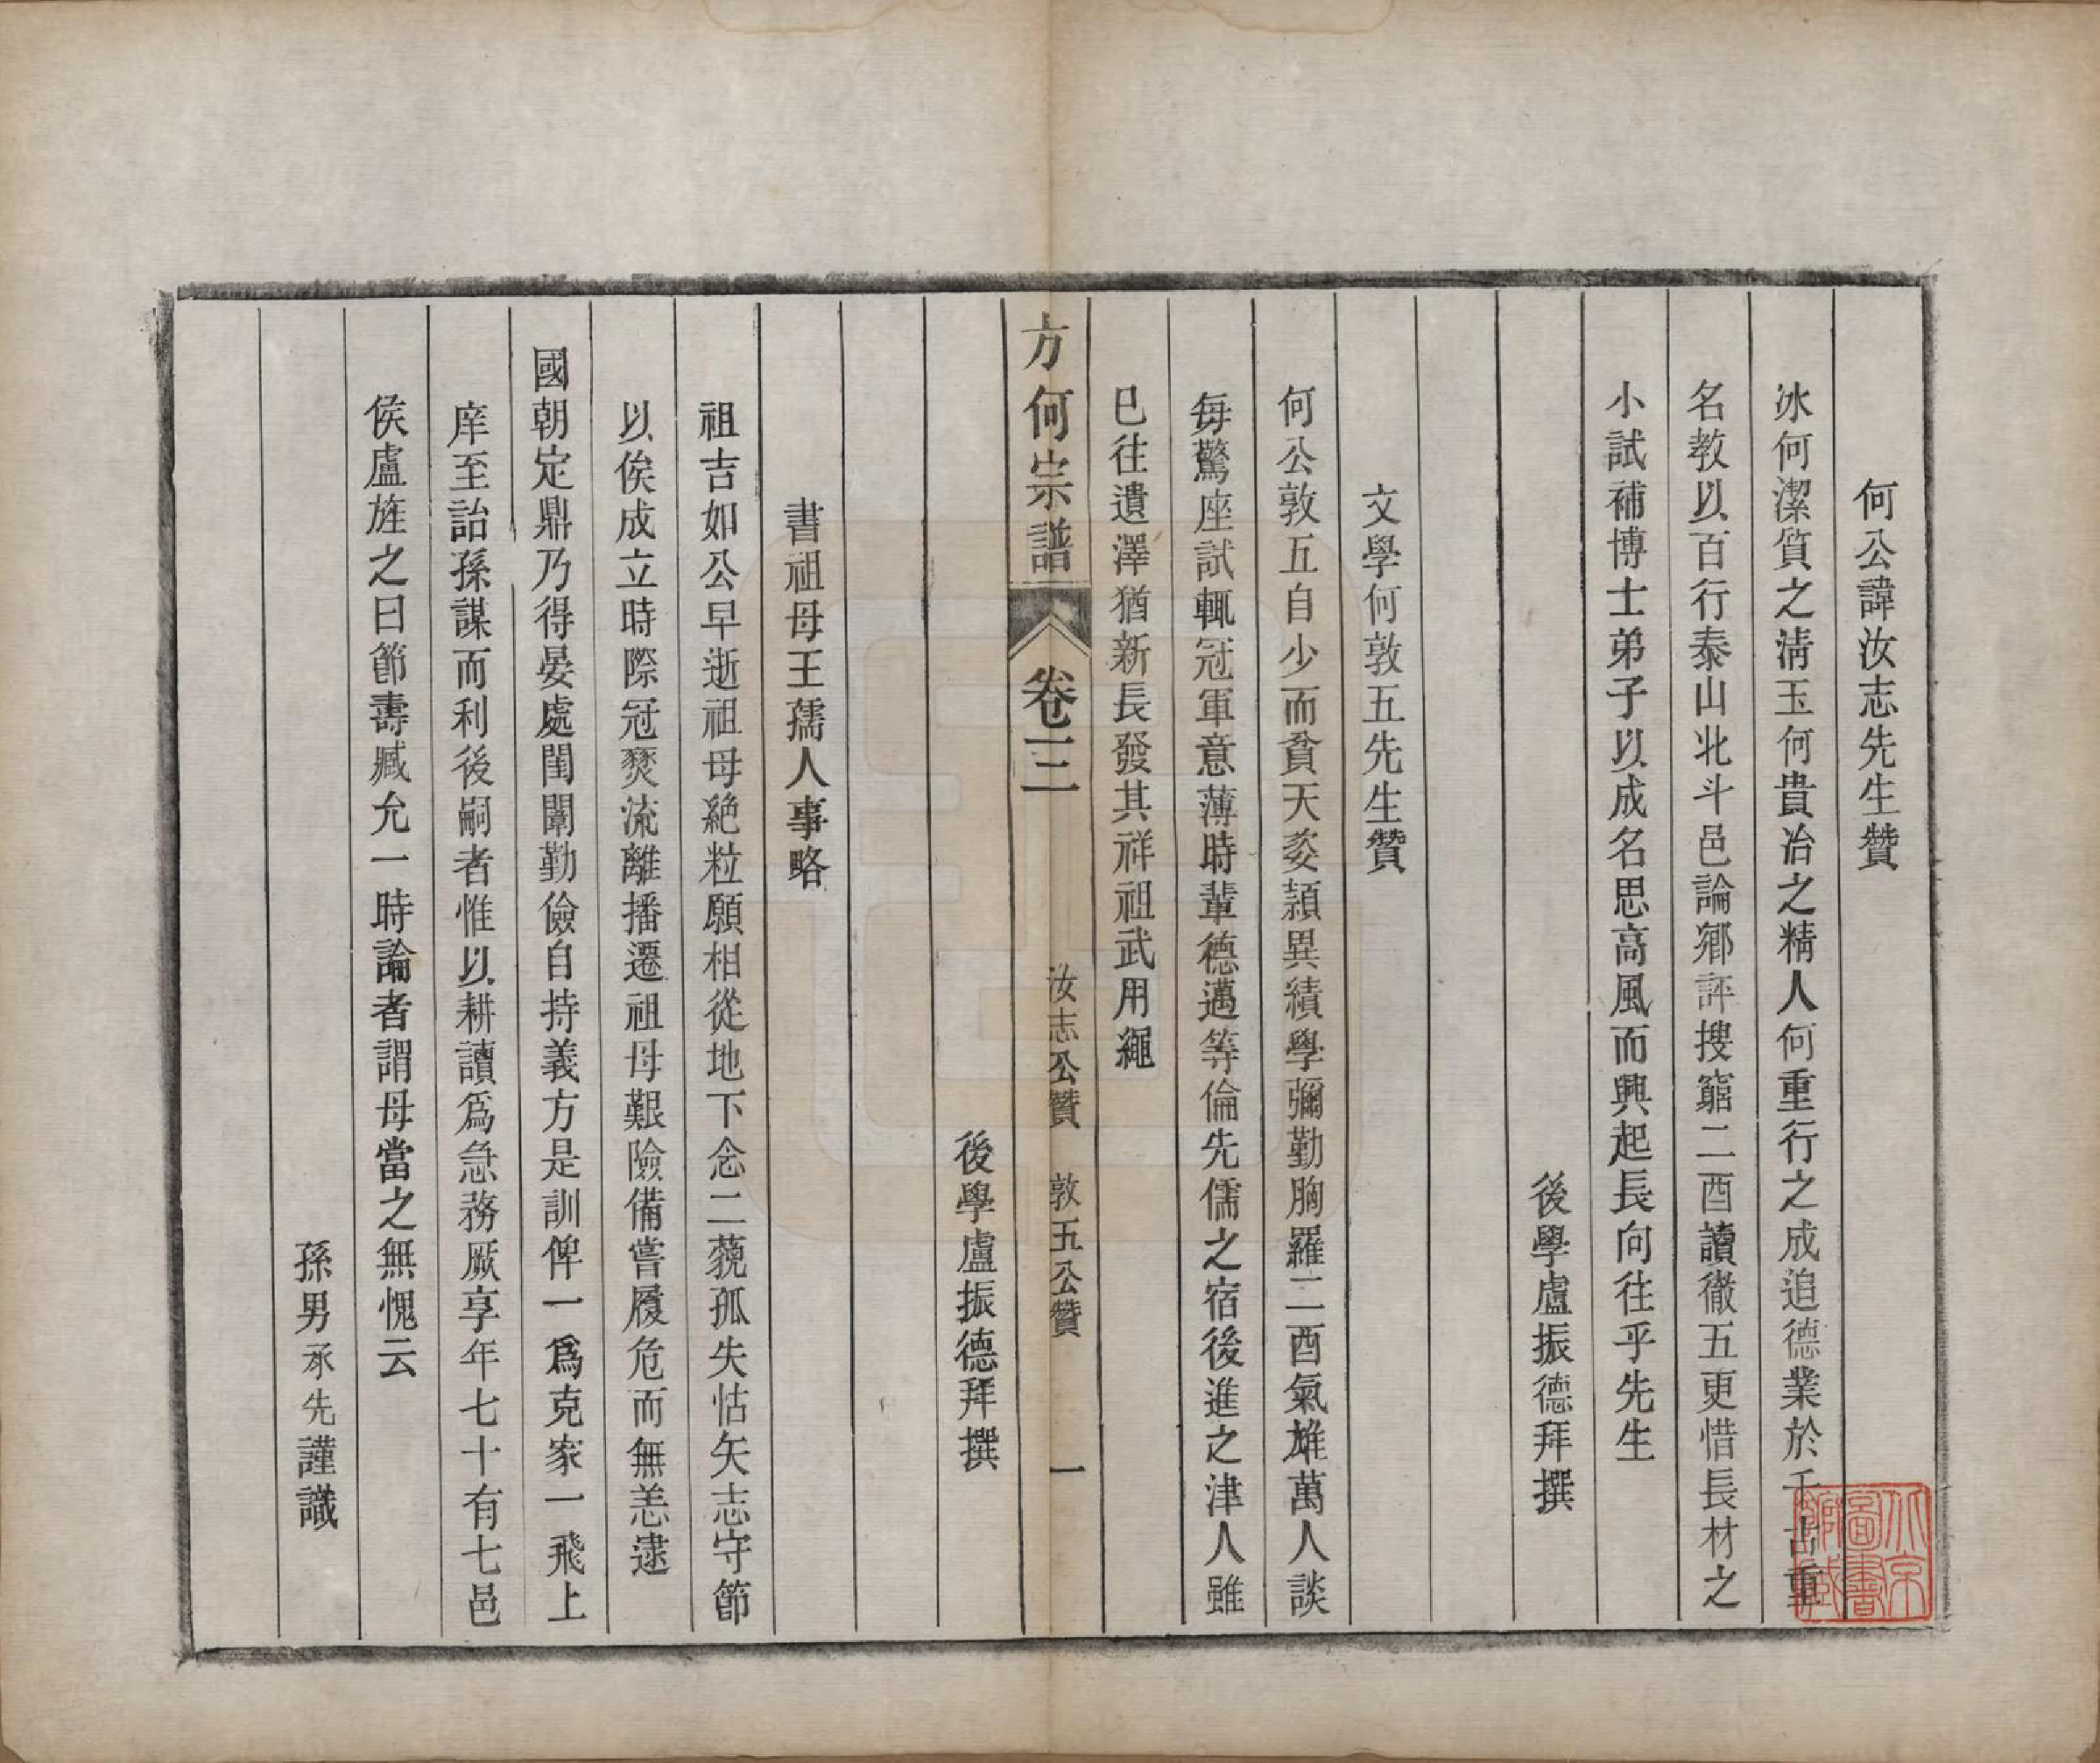 何公諱汝志先生贊
冰何潔質之淸玉何貴冶之精人何重行之成追德業於千古重
名教以百行泰山北斗邑論鄉評搜窮二酉讀徹五更惜長材之
小試補博士弟子以成名思高風而興起長向往乎先生
後學盧振德拜撰
文學何敦五先生贊
何公敦五自少而貧天姿頴異績學彌勤胸羅二酉氣雄萬人談
每驚座試輒冠軍意薄時輩德邁等倫先儒之宿後進之津人雖
巳往遺澤猶新長發其祥祖武用繩
方何宗譜 卷三 汝志公贊 敦五公贊 一
後學盧振德拜撰
書祖母王孺人事略
祖吉如公早逝祖母絶粒願相從地下念二藐孤失怙矢志守節
以俟成立時際冠燹流離播遷祖母艱險備嘗履危而無恙逮
國朝定鼎乃得晏處閨闈勤儉自持義方是訓俾一爲克家一飛上
庠至詒孫謀而利後嗣者惟以耕讀爲急務厥享年七十有七邑
侯盧旌之曰節壽臧允一時論者謂母當之無愧云
孫男承先謹識
北京圖書館藏